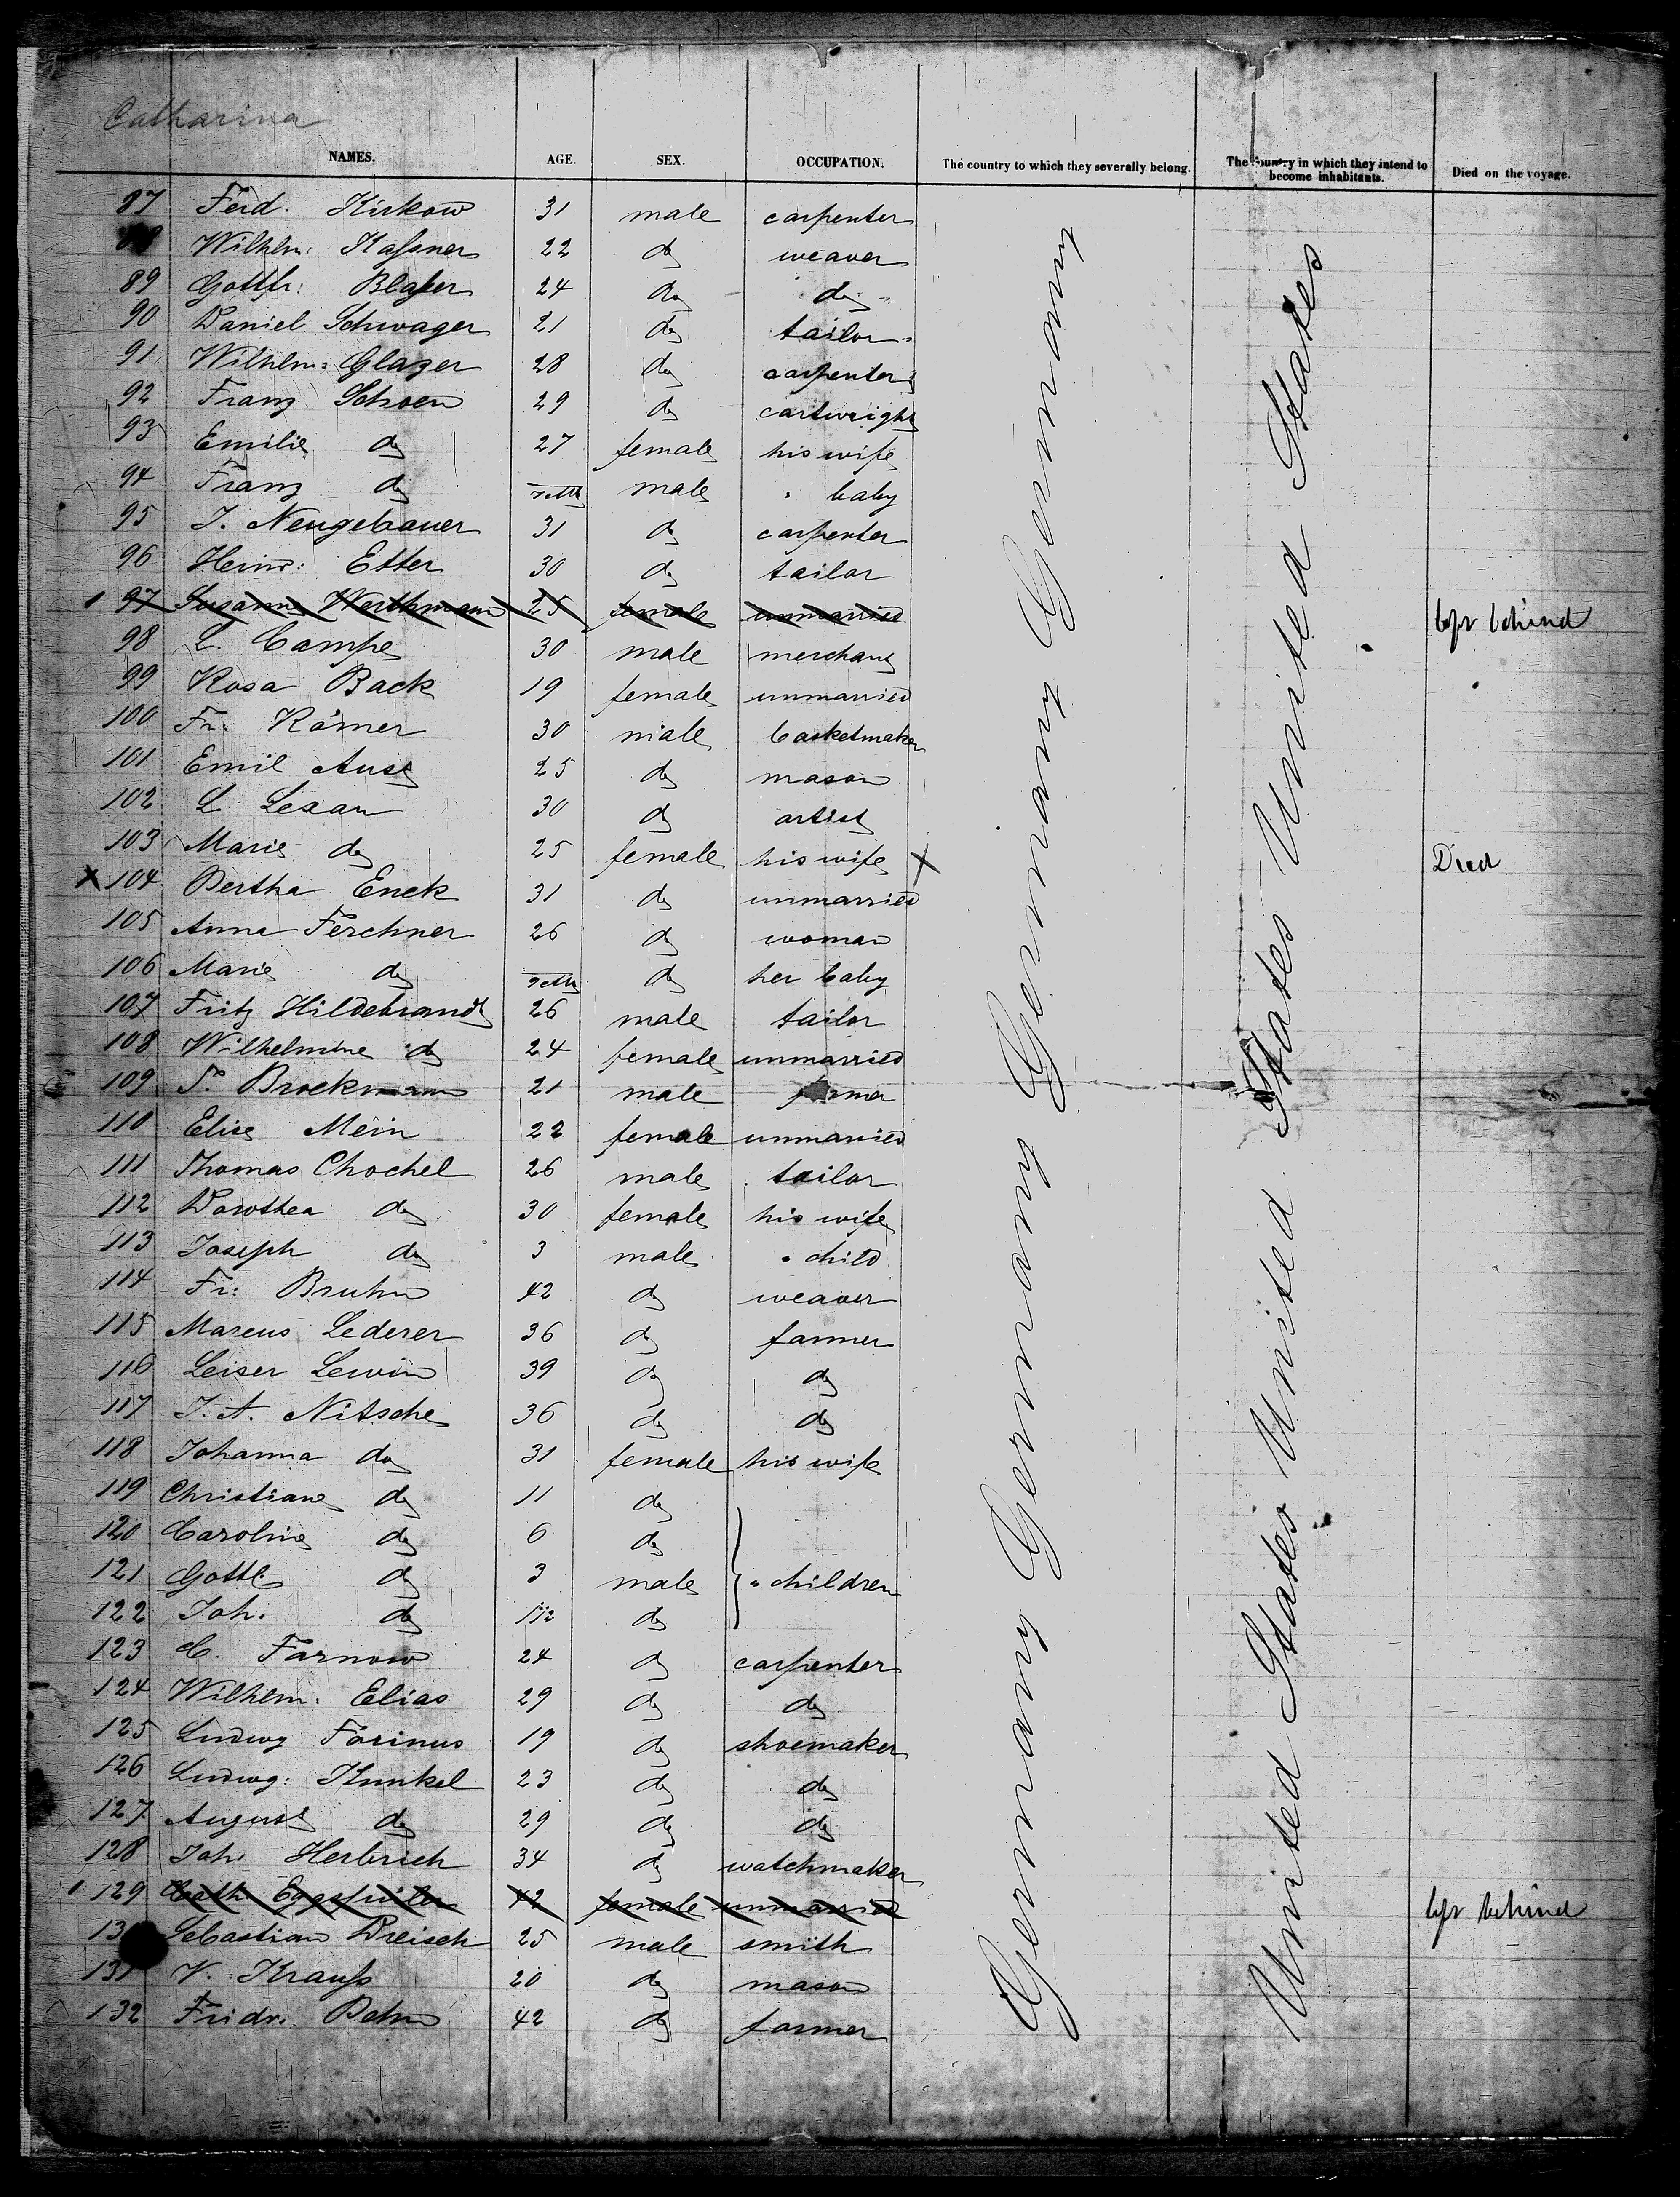 Catharina
NAMES. AGE. SEX. OCCUPATION. The country to which they severally belong. The country in which they intend to become inhabitants. Died on the voyage.
87 Ferd. Kirkow 31 male carpenter
Wilhlm: Kaßner 22 do weaver
89 Gottfr: Blaser 24 do do
90 Daniel Schwager 21 do tailor
91 Wilhlm: Glazer 28 do carpenter
92 Franz Schoen 29 do cartwright
93 Emilie do 27 female his wife
94 Franz do male " baby
95 J. Neugebauer 31 do carpenter
96 Heinr: Etter 30 do tailor
97 Susanne Werthmann 25 female unmarried left behind
98 L. Campe 30 male merchant
99 Rosa Back 19 female unmarried
100 Fr. Römer 30 male basketmaker
101 Emil Aust 25 do mason
102 L. Lexau 30 do artist
103 Marie do 25 female his wife X Died
X 104 Bertha Enck 31 do unmarried
105 Anna Ferchner 26 do woman
106 Marie do do her baby
107 Fritz Hildebrandt 26 male tailor
108 Wilhelmine do 24 female unmarried
109 T. Brockmann 21 male farmer
110 Elise Mein 22 female unmarried
111 Thomas Chochel 26 male tailor
112 Dorothea do 30 female his wife
113 Joseph do 3 male " child
114 Fr: Bruhn 42 do weaver
115 Marcus Lederer 36 do farmer
116 Leiser Lewin 39 do do
117 J. A. Nitsche 36 do do
118 Johanna do 31 female his wife
119 Christiane do 11 do
120 Caroline do 6 do
121 Gottl. do 3 male " children
122 Joh. do 1 1/2 do
123 C. Farnow 24 do carpenter
124 Wilhlm. Elias 29 do do
125 Ludwg Farinus 19 do shoemaker
126 Ludwg: Kunkel 23 do do
127 August do 29 do do
128 Joh. Herbrich 34 do watchmaker
129 Cath. 42 female unmarried left behind
130 Sebastian Dreisch 25 male smith
131 V. Krauß 20 do mason
132 Fridr. Behn 42 do farmer
Germany Germany Germany Germany
United States United States United States